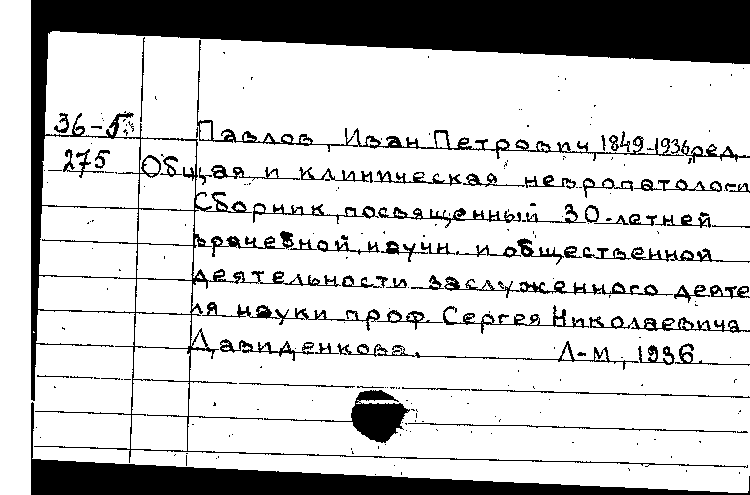 36-5 Павлов, Иван Петрович, 1849-1936, ред.
275 Общая и клиническая невропатологи
Сборник, посвященный 30-летней
врачебной, научн. и общественной
деятельности заслуженного деяте
ля науки проф. Сергея Николаевича
Давиденкова. Л-М, 1936.